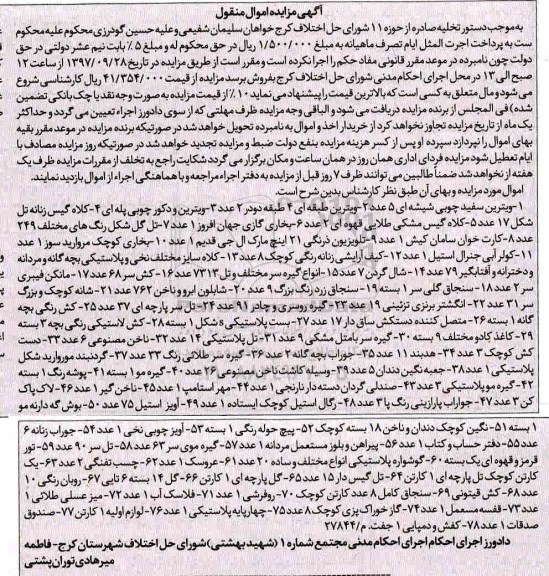 آگهی مزایده اموال منقول
به موجب دستور تخلیه صادره از حوزه ۱۱ شورای حل اختلاف کرج خواهان سلیمان شفیعی و علیه حسین گودرزی محکوم علیه محکوم
ست به پرداخت اجرت المثل ایام تصرف ماهیانه به مبلغ ۱/۵۰۰/۰۰۰ ریال در حق محکوم له و مبلغ ۵٪ بابت نیم عشر دولتی در حق
دولت چون نامبرده در موعد مقرر قانونی مفاد حکم را اجرا نکرده است و مقرر است از طریق مزایده در تاریخ ۱۳۹۷/۰۹/۲۸ از ساعت ۱۲
صبح الی ۱۳ در محل اجرای احکام مدنی شورای حل اختلاف کرج بفروش برسد مزایده از قیمت ۴۱/۳۵۴/۰۰۰ ریال کارشناسی شروع
می شود و مال متعلق به کسی است که بالاترین قیمت را پیشنهاد می نماید ۱۰٪ از قیمت مزایده به صورت وجه نقد یا چک بانکی تضمین
شده) فی المجلس از برنده مزایده دریافت می شود و الباقی وجه مزایده ظرف مهلتی که از سوی دادورز اجراء تعیین می گردد و حداکثر
یک ماه از تاریخ مزایده تجاوز نخواهد کرد از خریدار اخذ و اموال به نامبرده تحویل خواهد شد در صورتیکه برنده مزایده در موعد مقرر بقیه
بهای اموال را نپردازد سپرده او پس از کسر هزینه مزایده بنفع دولت ضبط و مزایده تجدید خواهد شد در صورتیکه روز مزایده مصادف با
ایام تعطیل شود مزایده فردای اداری همان روز در همان ساعت و مکان برگزار می گردد شکایت راجع به تخلف از مقررات مزایده ظرف یک
هفته از نخواهد شد ضمناً طالبین می توانند ظرف ۷ روز قبل از مزایده به دفتر اجراء مراجعه و با هماهنگی اجراء از اموال بازدید نمایند.
اموال مورد مزایده و بهای آن طبق نظر کارشناس بدین شرح است.
۱-ویترین سفید چوبی شیشه ای ۵ عدد ۲-ویترین طبقه ای ۴ طبقه دودر ۲ عدد ۳-ویترین و دکور چوبی پله ای ۴-کلاه گیس زنانه تل
شکل ۱۷ عدد ۵-کلاه گیس مشکی طلایی قهوه ای ۲ عدد ۶-بخاری گازی جهان افروز ۱ عدد ۷-تل گل شکل رنگ های مختلف ۲۴۹
عدد ۸-کارت خوان سامان کیش ۱ عدد ۹-تلویزیون ذرنگی ۲۱ اینچ مارک ال جی قدیم ۱ عدد ۱۰-بخاری کوچک مروارید سوز ۱ عدد
۱۱-کولر آبی جنرال استیل ۱ عدد ۱۲-کیف آرایشی زنانه رنگی کوچک ۸ عدد ۱۳-کلاه سایز مختلف نخی و پلاستیکی بچه گانه و مردانه
و دخترانه و آفتابگیر ۷۹ عدد ۱۴-شال گردن ۷ عدد ۱۵-انواع گیره سر مختلف و تل ۷۳۱۳ عدد ۱۶-کش سر ۶۸ عدد ۱۷-مانکن فیبری
سر ۲ عدد ۱۸-سنجاق گلی سر ۱ بسته ۱۹-سنجاق زرد رنگ بزرگ ۹ عدد ۲۰-شابلون ابرو و ناخن ۷۶۲ عدد ۲۱-شانه کوچک و بزرگ
سر ۳۱ عدد ۲۲-انگشتر برنزی تزئینی ۱۹ عدد ۲۳-گیره روسری و چادر ۹۱ عدد ۲۴-تل سر پارچه ای ۳۷ عدد ۲۵-کش رنگی بچه
گانه ۱ بسته ۲۶-متصل کننده دستکش ساق دار ۱۷ عدد ۲۷-بست پلاستیکی s شکل ۱ بسته ۲۸-کش لاستیکی رنگی بچه ۳ بسته
۲۹-کاغذ کادو مختلف ۹ بسته ۳۰-گیره سر بامثل مشکی ۹ عدد ۳۱-تل پلاستیکی ۱۴ عدد ۳۲-ناخن مصنوعی ۶ عدد ۳۳-دست
کش کوچک ۲ عدد ۳۴-هدبند ۱۱ عدد ۳۵-جوراب بچه گانه ۲ عدد ۳۶-گیره سر طلائی رنگ ۳۳ عدد ۳۷-گردنبند مورواید شکل
پلاستیکی ۱ عدد ۳۸-جعبه نگین دندان ۵ عدد ۳۹-وسیله کاشت ناخن مصنوعی ۲۶ عدد ۴۰-گیره مو ۱ بسته ۴۱-پوشه رنگ ۱ بسته
۴۲-گیره مو پلاستیکی ۳ عدد ۴۳-صندلی گردان دسته دار نارنجی ۱ عدد ۴۴-مهر استامپ ۱ عدد ۴۵-ناخن گیر ۱ عدد ۴۶-لاک پاک
کن ۳ عدد ۴۷-جواراب پارازینی رنگ پا ۳ عدد ۴۸-رگال استیل کوچک ایستاده ۱ عدد ۴۹-آویز استیل ۷۵ عدد ۵۰-بوش گه دارنه مو
۱ بسته ۵۱-نگین کوچک دندان و ناخن ۱۸ بسته کوچک ۵۲-پیچ حوله رنگی ۱ بسته ۵۳-آویز چوبی نخی ۱ عدد ۵۴-جوراب زنانه ۶
عدد ۵۵-دفتر حساب و کتاب ۱ عدد ۵۶-پیراهن و بلوز مستعمل مردانه ۱ عدد ۵۷-گیره موی سر ۶۳ عدد ۵۸-تل سر ۹۰ عدد ۵۹-تور
قرمز و قهوه ای یک بسته ۶۰-گوشواره پلاستیکی انواع مختلف و ساده ۲۰ عدد ۶۱-عروسک ۱ عدد ۶۲-چسب تفنگی ۲ عدد ۶۳-یک
کارتن کوچک تل پارچه ای ۱ کارتن ۶۴-تل گیس دار ۱۵ عدد ۶۵-گل پارچه ای ۱ کارتن ۶۶-گل ۱۴ بسته ۶ تایی ۶۷-روبان رنگی ۱۰
عدد ۶۸-کش قیتونی ۶۹-سنجاق کامل ۸ عدد کارتن کوچک ۷۰-روفرشی ۱ عدد ۷۱-فلاسک آب ۱ عدد ۷۲-میز عسلی طلائی ۱
عدد ۷۳-قفسه مسعمل ۱ عدد ۷۴-گاز خوراک پزی کوچک ۸ عدد ۷۵-چهارپایه پلاستیکی ۱ عدد ۷۶-لوازم اولیه ۱ کارتن ۷۷-صندوق
صدقات ۱ عدد ۷۸-کفش و دمپایی ۱ جفت. م/۲۷۸۴۴
دادورز اجرای احکام اجرای احکام مدنی مجتمع شماره ۱ (شهید بهشتی) شورای حل اختلاف شهرستان کرج - فاطمه
میرهادی توران پشتی